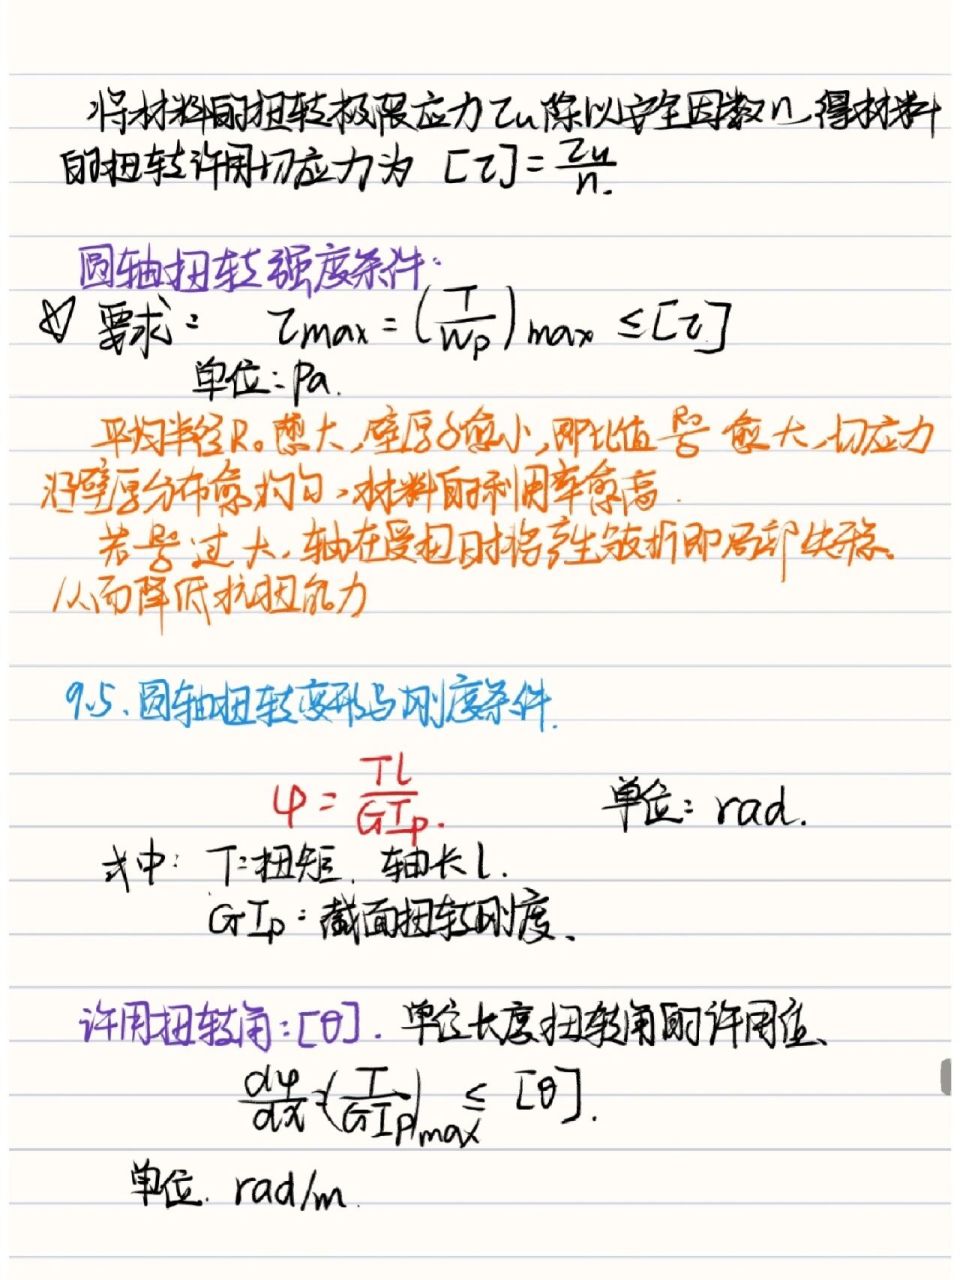 将材料的扭转极限应力τu除以安全因数n,得材料
的扭转许用切应力为 [τ]=τu/n.
圆轴扭转强度条件:
☆ 要求: τmax=(T/Wp)max≤[τ]
单位:Pa.
平均半径R₀愈大,壁厚δ愈小,即比值R₀/δ愈大,切应力
沿壁厚分布愈均匀,材料的利用率愈高.
若R₀/δ过大,轴在受扭时将产生皱折即局部失稳。
从而降低抗扭能力
9.5、圆轴扭转变形与刚度条件.
φ=Tl/GIp. 单位:rad.
式中: T:扭矩. 轴长l.
GIp:截面扭转刚度、
许用扭转角:[θ]. 单位长度扭转角的许用值、
dφ/dx=(T/GIp)max≤[θ].
单位. rad/m.